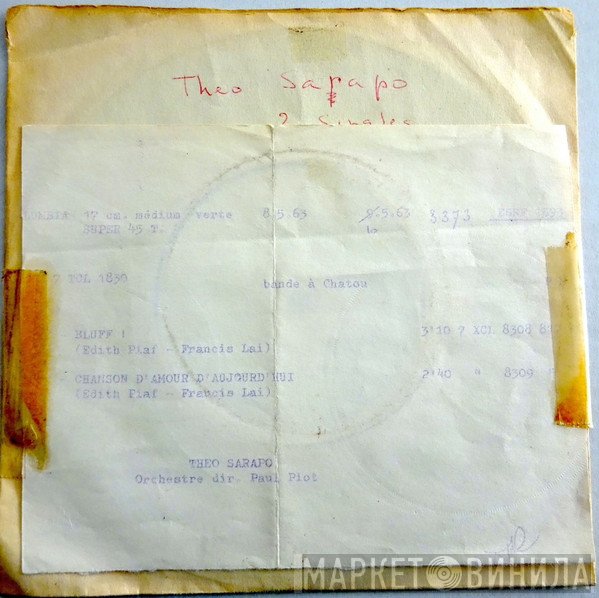 Theo Sarapo
2 Singles
LUMBIA 17 cm. médium verte 8.5.63 9.5.63 3373
SUPER 45 T.
7 TCL 1830 bande à Chatou
BLUFF ! 3'10 7 XCL 8308
(Edith Piaf - Francis Lai)
CHANSON D'AMOUR D'AUJOURD'HUI 2'40 " 8309
(Edith Piaf - Francis Lai)
THEO SARAPO
Orchestre dir. Paul Piot
МАРКЕТ ВИНИЛА